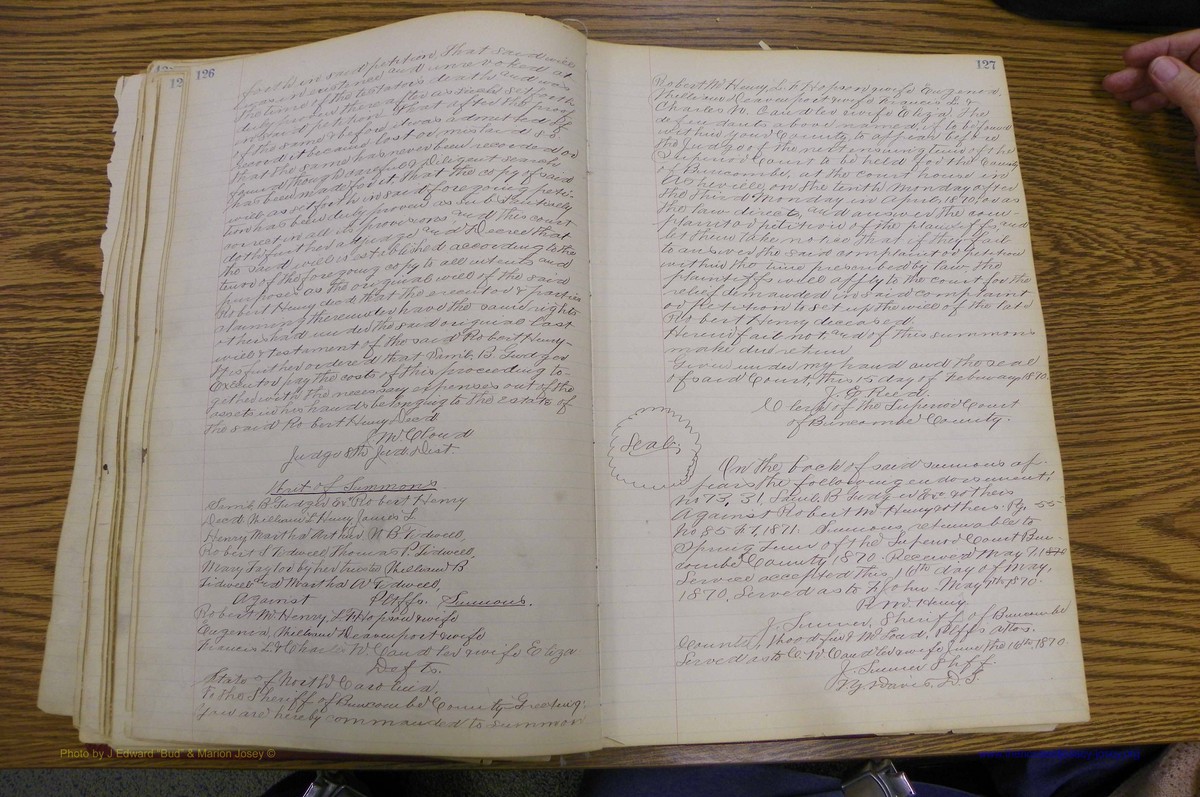 126
forth in said petition, that said will
was in existence and unrevoked at
the time of the testators death and was
duly proven thereafter as is also set forth
in said petition, that after the proof
of the same & before it was admitted of
record it became lost or mislaid & so
that the same has never been recorded or
found though careful & diligent search
has been made for it, that the copy of said
will as set forth in said foregoing peti-
tion has been duly proven as substantially
correct in all its provisions and this court
doth further adjudge and Decree that
the said will is established according to the
tenor of the foregoing copy to all intents and
purposes as the original will of the said
Robert Henry decd that the executor & parties
claiming thereunder have the same rights
others had under the said original Last
will & testament of the said Robert Henry-
It is further ordered that Saml. B. Gudger
Executor pay the costs of this proceeding to-
gether with the necessary expenses out of the
assets in his hands belonging to the estate of
the said Robert Henry Decd
J. M. Cloud
Judge 8th Jud. Dist.
Writ of Summons
Saml. B. Gudger Exr Robert Henry
Decd. William L Henry James L
Henry Martha Arthur N. B. Tidwell,
Robert S Tidwell Thomas P. Tidwell,
Mary Taylor by her trustee William B
Tidwell and Martha A Tidwell,
Against Pltffs. Summons.
Robert M. Henry, L H Hopson wife
Eugenia, William Deavenport wife
Francis L & Charles N. Candler wife Eliza
Defts.
State of North Carolina,
To the Sheriff of Buncombe County Greeting:
You are hereby commanded to summon
127
Robert M. Henry, L. H Hopson wife Eugenia.
William Deavenport wife Francis L. &
Charles N. Candler wife Eliza. The
defendants above named, if to be found
within your County to appear before
the Judge of the next ensuing term of the
Superior Court to be held for the County
of Buncombe, at the court house in
Asheville, on the tenth Monday after
the third Monday in April, 1870, or as
the law directs, and answer the com-
plaint or petition of the plaintiffs, and
let them take notice that if they fail
to answer the said complaint or petition
within the time prescribed by law, the
plaintiffs will apply to the court for the
relief demanded in said complaint
or petition to set up the will of the late
Robert Henry deceased.
Herein fail not and of this summons
make due return
Given under my hand and the seal
of said Court, this 15 day of February 1870.
J. E Reed.
Clerk of the Superior Court
of Buncombe County.
Seal.
On the back of said summons ap-
pears the following endorsement:
No 73, 31. Saml. B Gudger Exr & others
Against Robert M. Henry & others. Pg. 55-
No 85 F. T, 1871. Summons, returnable to
Spring Term of the Superior Court Bun-
combe County, 1870. Received May 7th 1870
Service accepted this 16th day of May,
1870, Served as to May 7th 1870.
R M. Henry.
J. Sumner, Sheriff of Buncombe
County, Woodfin & McLoud, Pltffs attos.
Served as to C. N. Candler & wife June the 16th, 1870
J. Sumner Shff.
Davis. D. S
Photo by J Edward "Bud" & Marion Josey ©